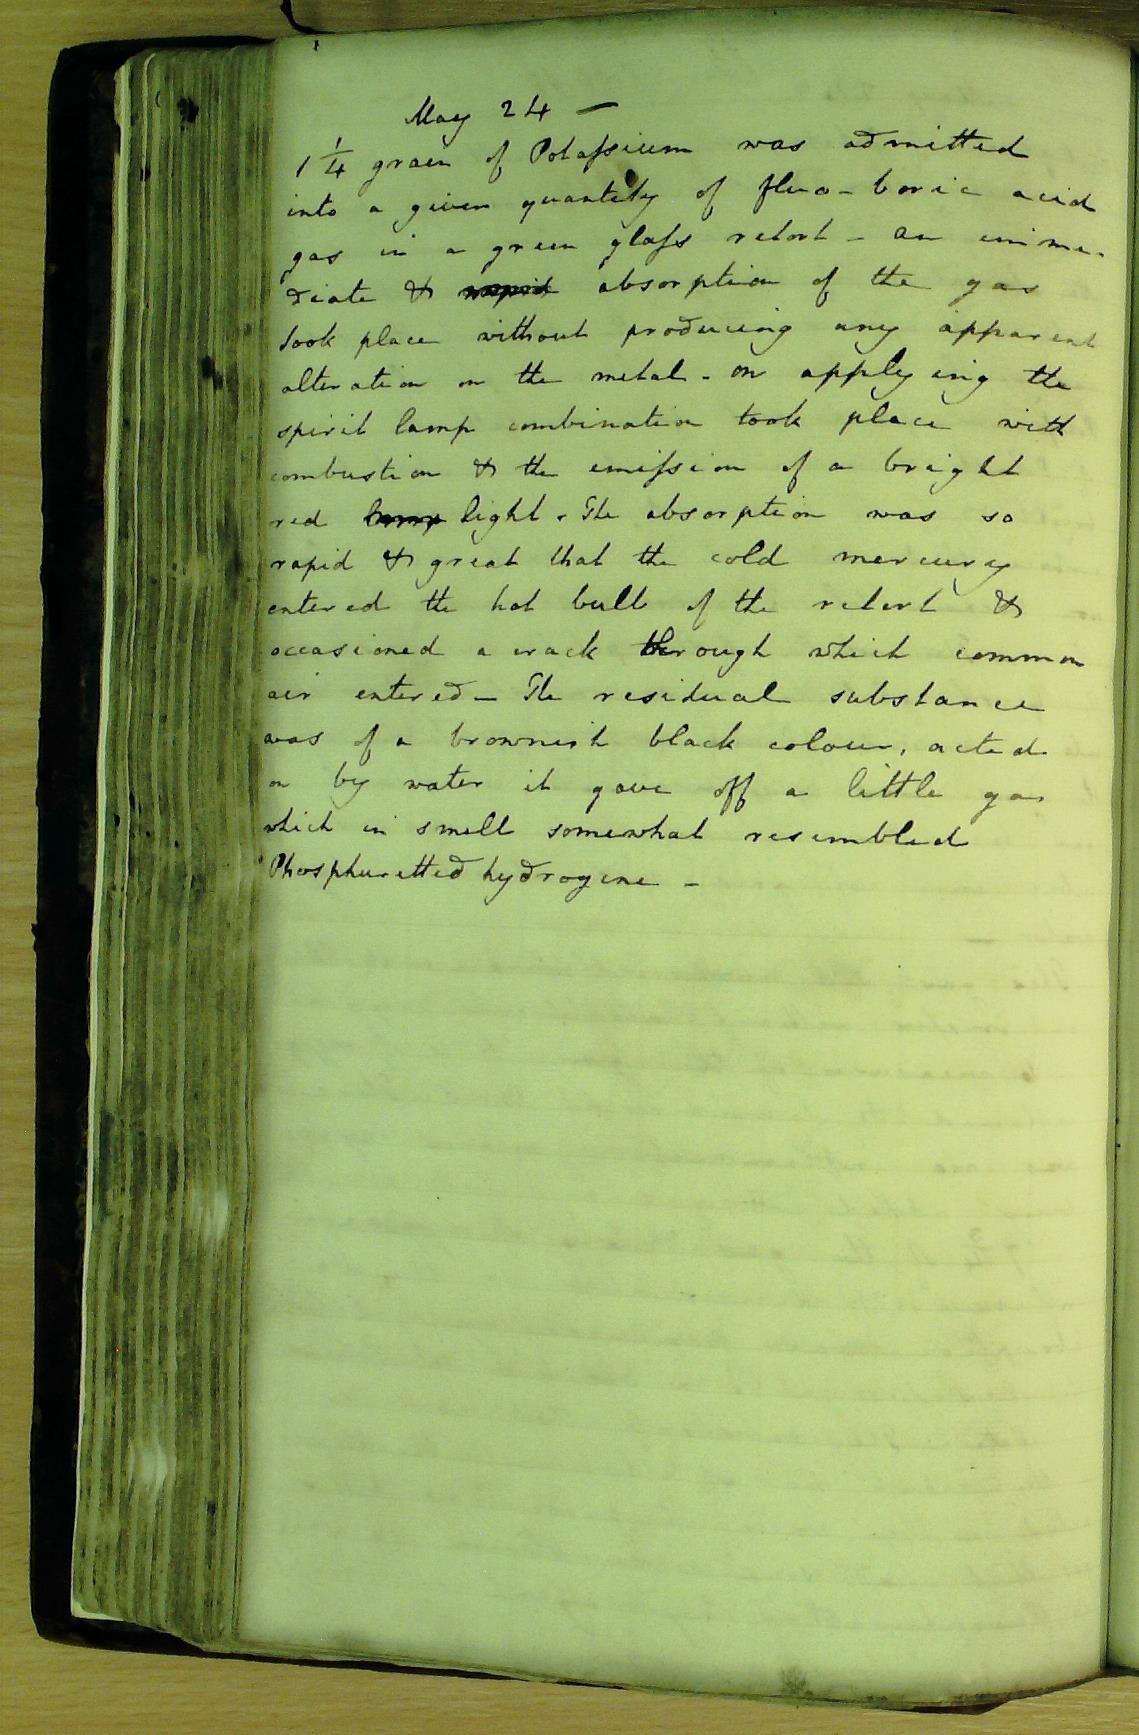 May 24 -
1 1/4 grain of Potassium was admitted
into a given quantity of fluo-boric acid
gas in a green glass retort - an imme-
diate & rapid absorption of the gas
took place without producing any apparent
alteration on the metal - on applying the
spirit lamp combination took place with
combustion & the emission of a bright
red lamp light. The absorption was so
rapid & great that the cold mercury
entered the hot bulb of the retort &
occasioned a crack through which common
air entered - The residual substance
was of a brownish black colour, acted
on by water it gave off a little gas
which in smell somewhat resembled
Phosphuretted hydrogene -